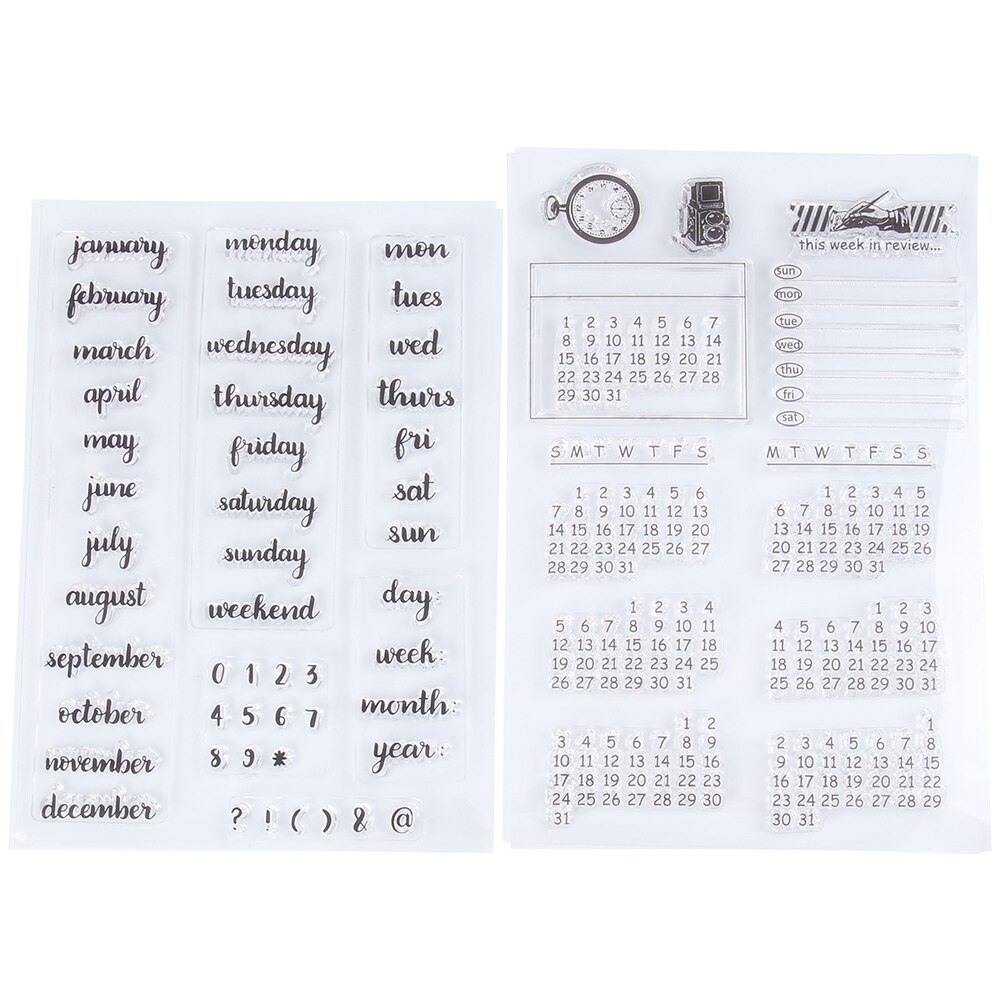 january
february
march
april
may
june
july
august
september
october
november
december
monday
tuesday
wednesday
thursday
friday
saturday
sunday
weekend
mon
tues
wed
thurs
fri
sat
sun
day:
week:
month:
year:
0 1 2 3
4 5 6 7
8 9 *
? ! ( ) & @
this week in review...
sun
mon
tue
wed
thu
fri
sat
1 2 3 4 5 6 7
8 9 10 11 12 13 14
15 16 17 18 19 20 21
22 23 24 25 26 27 28
29 30 31
S M T W T F S
M T W T F S S
1 2 3 4 5 6
7 8 9 10 11 12 13
14 15 16 17 18 19 20
21 22 23 24 25 26 27
28 29 30 31
1 2 3 4 5
6 7 8 9 10 11 12
13 14 15 16 17 18 19
20 21 22 23 24 25 26
27 28 29 30 31
1 2 3 4
5 6 7 8 9 10 11
12 13 14 15 16 17 18
19 20 21 22 23 24 25
26 27 28 29 30 31
1 2 3
4 5 6 7 8 9 10
11 12 13 14 15 16 17
18 19 20 21 22 23 24
25 26 27 28 29 30 31
1 2
3 4 5 6 7 8 9
10 11 12 13 14 15 16
17 18 19 20 21 22 23
24 25 26 27 28 29 30
31
1
2 3 4 5 6 7 8
9 10 11 12 13 14 15
16 17 18 19 20 21 22
23 24 25 26 27 28 29
30 31